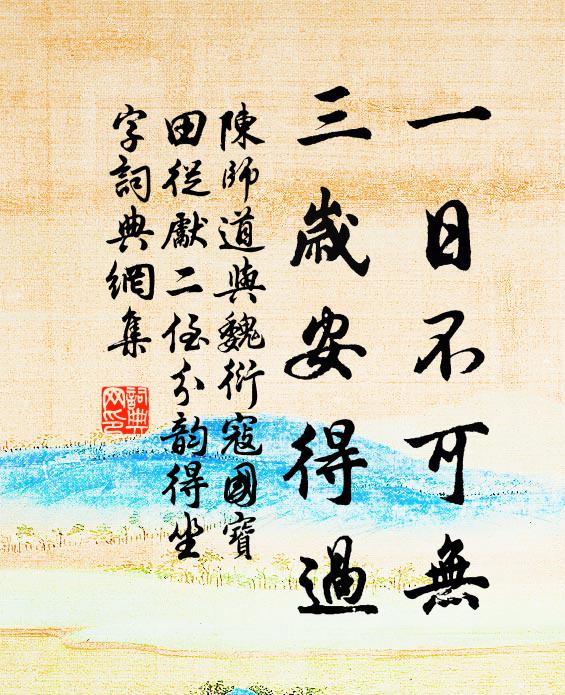 一日不可無
三歲安得過
陳師道與魏衍寇國寶
田從獻二侄分韵得坐
字詞典網集
詞典
网印